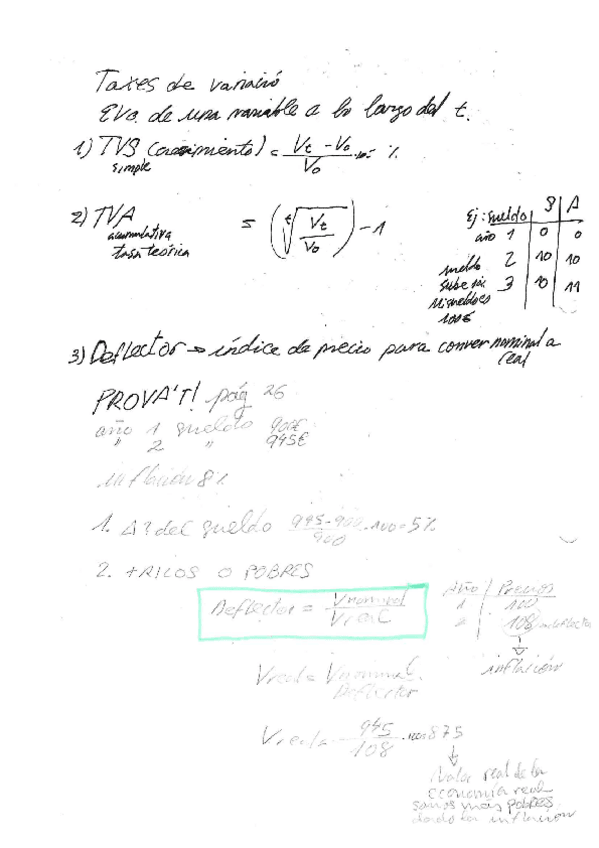 Taxes de variació
Evo. de una variable a lo largo del t.
1) TVS (crecimiento) = Vt - Vo / Vo · 100 = %
simple
2) TVA = (t√(Vt / Vo)) - 1
acumulativa
tasa teórica
Ej: sueldo | S | A
año 1 | 0 | 0
2 | 10 | 10
3 | 10 | 11
sueldo
sube
100€
3) Deflector → índice de precio para conver nominal a
real
PROVA'T! pág 26
año 1 sueldo 900€
" 2 " 945€
inflación 8%
1. Δ? del sueldo 945-900 / 900 · 100 = 5%
2. + RICOS O POBRES
Deflector = Vnominal / Vreal
Año | Precios
1 | 100
2 | 108
inflación
Vreal = Vnominal / Deflector
Vreal = 945 / 108 · 100 = 875
Valor real de la
economía real
somos más pobres
dado la inflación